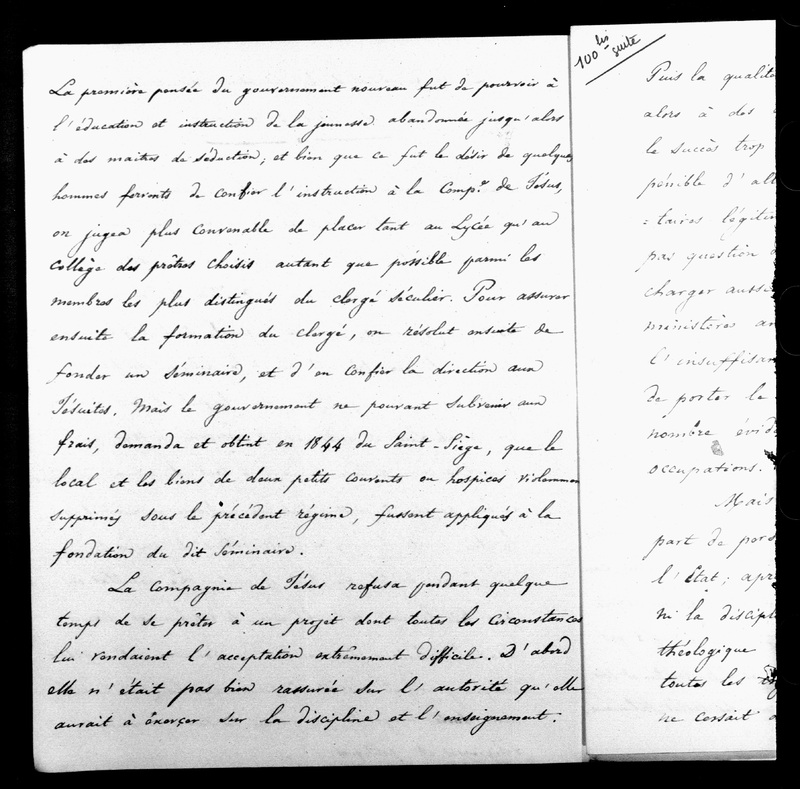 La première pensée du gouvernement nouveau fut de pourvoir à
l'éducation et instruction de la jeunesse abandonnée jusqu'alors
à des maitres de séduction; et bien que ce fut le désir de quelques
hommes fervents de confier l'instruction à la Comp.ie de Jésus,
on jugea plus convenable de placer tant au Lycée qu'au
collège des prêtres choisis autant que possible parmi les
membres les plus distingués du clergé séculier. Pour assurer
ensuite la formation du clergé, on résolut ensuite de
fonder un Séminaire, et d'en confier la direction aux
Jésuites. Mais le gouvernement ne pouvant subvenir aux
frais, demanda et obtint en 1844 du Saint-Siège, que le
local et les biens de deux petits couvents ou hospices violemmen
supprimés sous le précédent régime, fussent appliqués à la
fondation du dit Séminaire.
La Compagnie de Jésus refusa pendant quelque
temps de se prêter à un projet dont toutes les circonstances
lui rendaient l'acceptation extrêmement difficile. D'abord
elle n'était pas bien rassurée sur l'autorité qu'elle
aurait à exercer sur la discipline et l'enseignement.
100 bis
suite
Puis la qualité
alors à des
le succès trop
pénible d'al
=taires légitim
pas question
charger aussi
ministère a
l'insuffisan
de porter le
nombre évid
occupations.
Mais
part de pers
l'État; apr
ni la discipl
théologique
toutes les
ne cessait